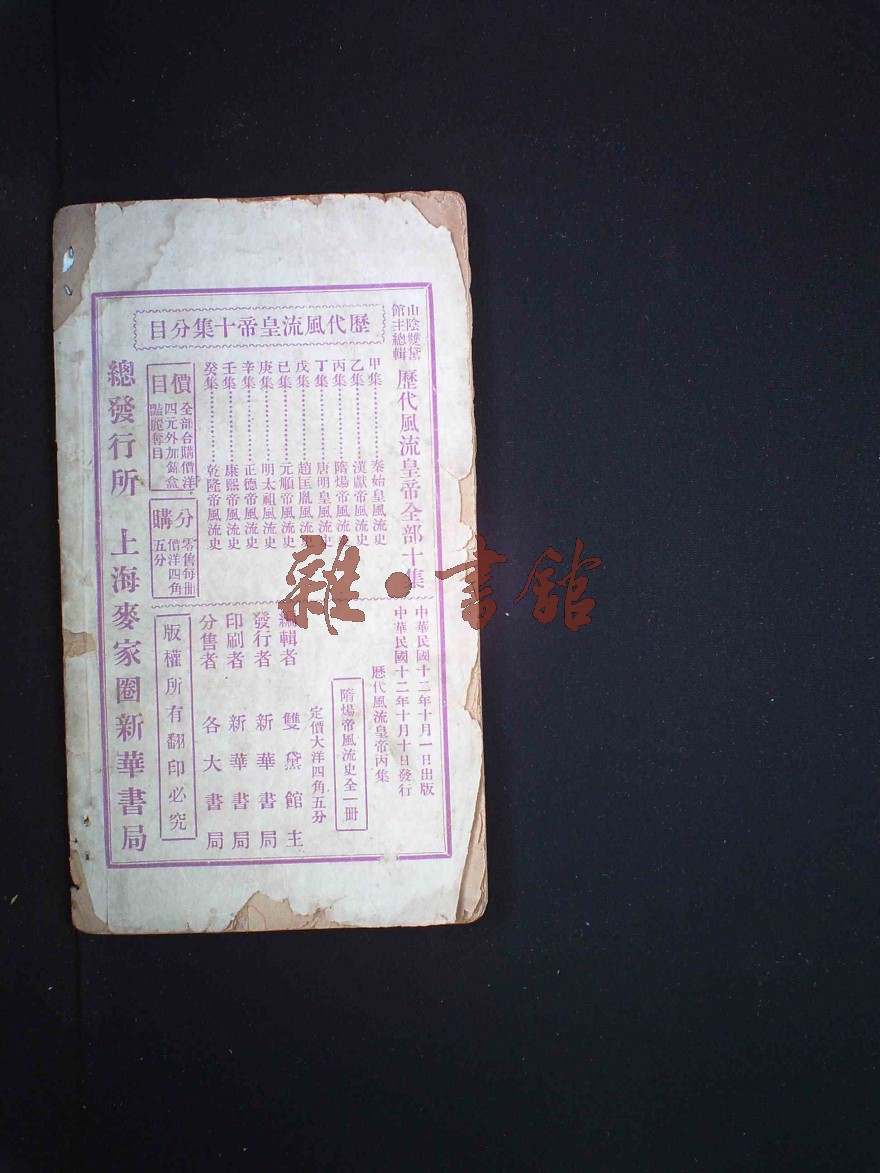 山陰雙黛
館主總輯
歷代風流皇帝全部十集
歷代風流皇帝十集分目
甲集……………秦始皇風流史
乙集……………漢獻帝風流史
丙集……………隋煬帝風流史
丁集……………唐明皇風流史
戊集……………趙匡胤風流史
己集……………元順帝風流史
庚集……………明太祖風流史
辛集……………正德帝風流史
壬集……………康熙帝風流史
癸集……………乾隆帝風流史
價目
全部合購價洋
四元外加錦盒
豔麗奪目
分購
零售每冊
價洋四角
五分
中華民國十二年十月一日出版
中華民國十二年十月十日發行
歷代風流皇帝丙集
隋煬帝風流史全一冊
定價大洋四角五分
編輯者 雙黛館主
發行者 新華書局
印刷者 新華書局
分售者 各大書局
版權所有翻印必究
總發行所 上海麥家圈新華書局
雜·書館